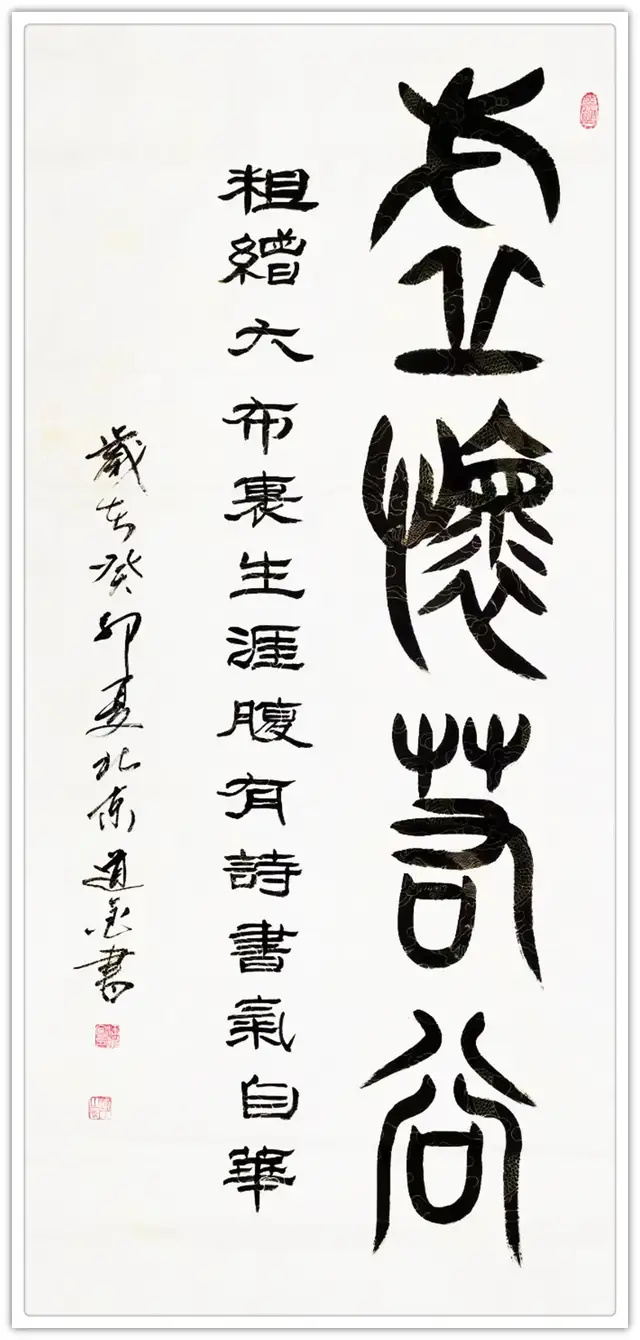 虚懷若谷
粗繒大布裹生涯腹有詩書氣自華
歲在癸卯夏北京道金書